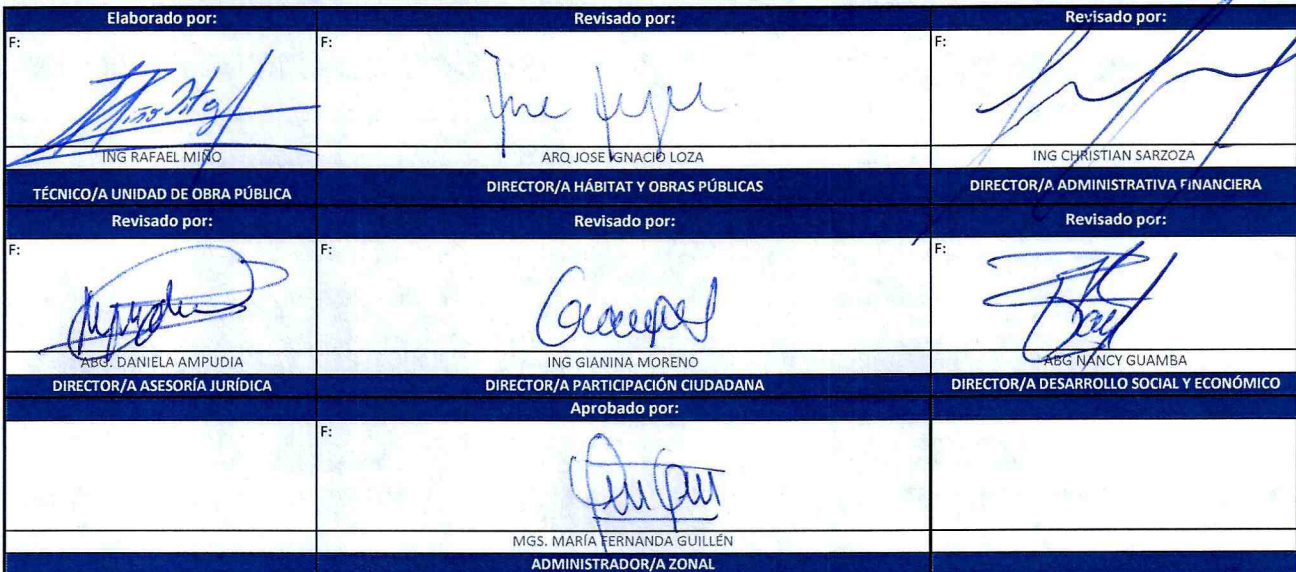 Elaborado por: Revisado por: Revisado por:
F: F: F:
ING RAFAEL MIÑO ARQ JOSE IGNACIO LOZA ING CHRISTIAN SARZOZA
TÉCNICO/A UNIDAD DE OBRA PÚBLICA DIRECTOR/A HÁBITAT Y OBRAS PÚBLICAS DIRECTOR/A ADMINISTRATIVA FINANCIERA
Revisado por: Revisado por: Revisado por:
F: F: F:
ABG. DANIELA AMPUDIA ING GIANINA MORENO ABG NANCY GUAMBA
DIRECTOR/A ASESORÍA JURÍDICA DIRECTOR/A PARTICIPACIÓN CIUDADANA DIRECTOR/A DESARROLLO SOCIAL Y ECONÓMICO
Aprobado por:
F:
MGS. MARÍA FERNANDA GUILLÉN
ADMINISTRADOR/A ZONAL